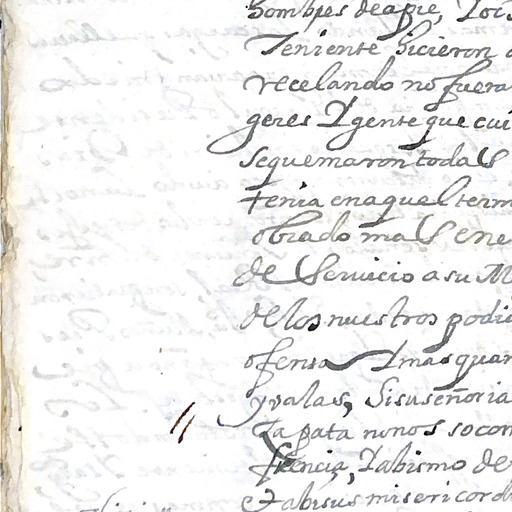 hombres de apie, Y ois
Teniente hicieron
recelando no fuera
geres Y gente que cui
se quemaron todas
tenia en aquel term
obrado mas ene
de servicio a su M
de los nuestros podi
ofensa Y mas quan
y valas, si su señoria
Zapata no nos socor
Y abismo de
Y a bisus misericord